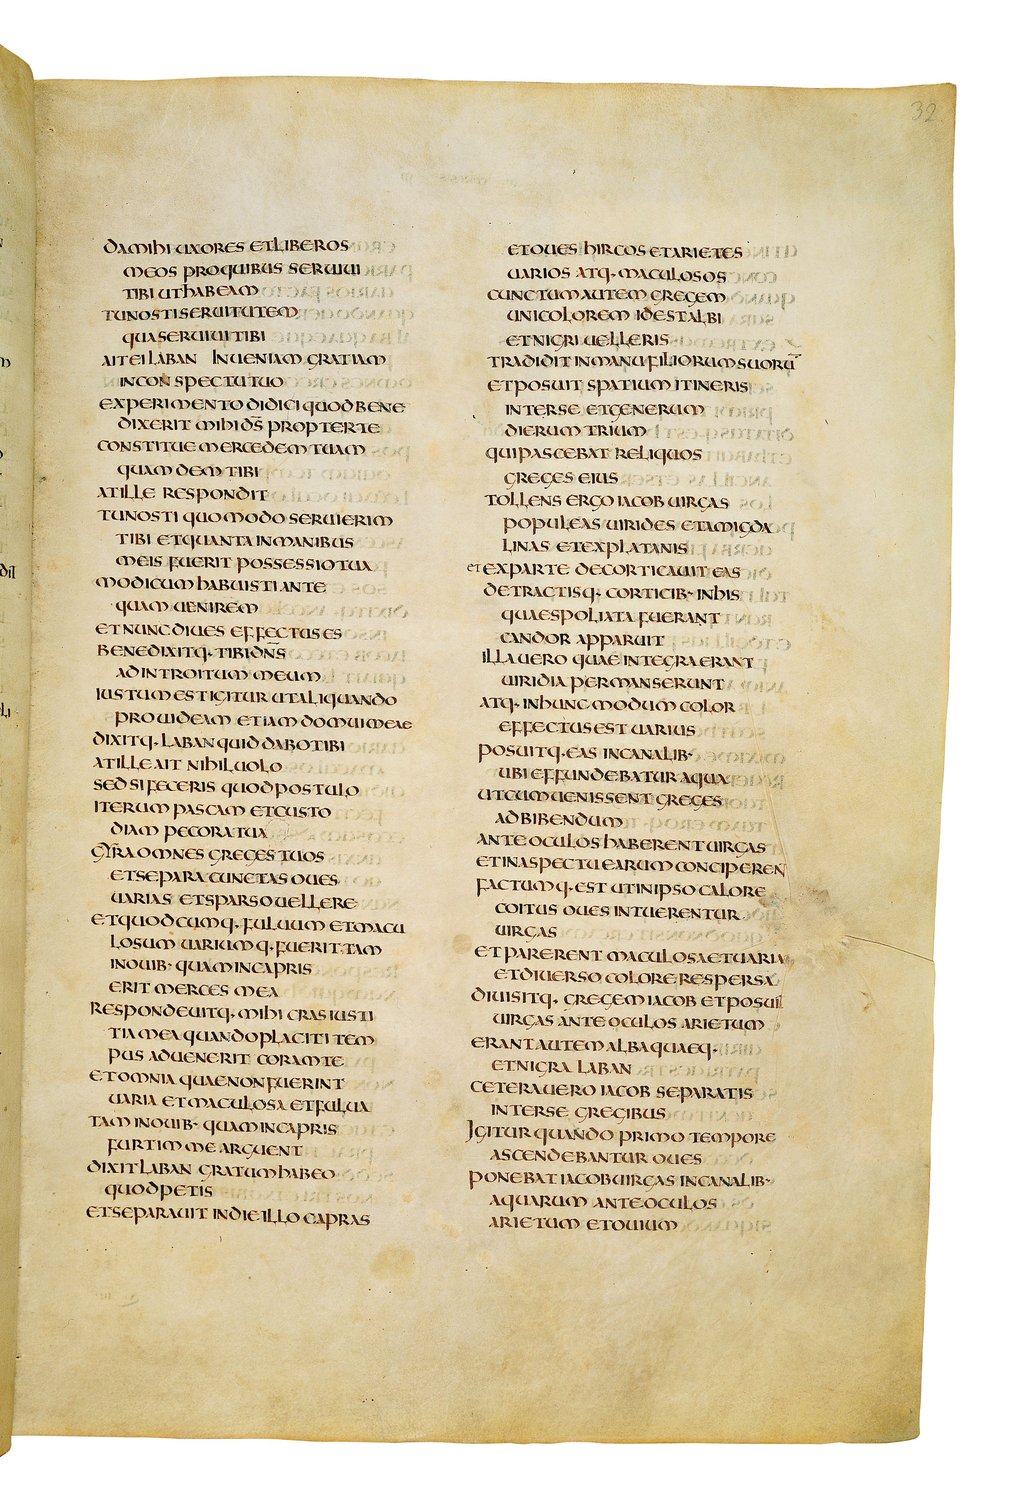 32
DA MIHI UXORES ET LIBEROS
MEOS PRO QUIBUS SERUIUI
TIBI UT HABEAM
TU NOSTI SERUITUTEM
QUA SERUIUI TIBI
AIT EI LABAN INUENIAM GRATIAM
IN CONSPECTU TUO
EXPERIMENTO DIDICI QUOD BENE
DIXERIT MIHI D̄S̄ PROPTER TE
CONSTITUE MERCEDEM TUAM
QUAM DEM TIBI
AT ILLE RESPONDIT
TU NOSTI QUOMODO SERUIERIM
TIBI ET QUANTA IN MANIBUS
MEIS FUERIT POSSESSIO TUA
MODICUM HABUISTI ANTE
QUAM UENIREM
ET NUNC DIUES EFFECTUS ES
BENEDIXITQ· TIBI D̄N̄S̄
AD INTROITUM MEUM
IUSTUM EST IGITUR UT ALIQUANDO
PROUIDEAM ETIAM DOMUI MEAE
DIXITQ· LABAN QUID DABO TIBI
AT ILLE AIT NIHIL UOLO
SED SI FECERIS QUOD POSTULO
ITERUM PASCAM ET CUSTO
DIAM PECORA TUA
GYRA OMNES GREGES TUOS
ET SEPARA CUNCTAS OUES
UARIAS ET SPARSO UELLERE
ET QUODCUMQ· FULUUM ET MACU
LOSUM UARIUMQ· FUERIT TAM
IN OUIB· QUAM IN CAPRIS
ERIT MERCES MEA
RESPONDEUITQ· MIHI CRAS IUSTI
TIA MEA QUANDO PLACITI TEM
PUS ADUENERIT CORAM TE
ET OMNIA QUAE NON FUERINT
UARIA ET MACULOSA ET FULUA
TAM IN OUIB· QUAM IN CAPRIS
FURTI ME ARGUENT
DIXIT LABAN GRATUM HABEO
QUOD PETIS
ET SEPARAUIT IN DIE ILLO CAPRAS
ET OUES HIRCOS ET ARIETES
UARIOS ATQ· MACULOSOS
CUNCTUM AUTEM GREGEM
UNICOLOREM ID EST ALBI
ET NIGRI UELLERIS
TRADIDIT IN MANU FILIORUM SUORU̅
ET POSUIT SPATIUM ITINERIS
INTER SE ET GENERUM
DIERUM TRIUM
QUI PASCEBAT RELIQUOS
GREGES EIUS
TOLLENS ERGO IACOB UIRGAS
POPULEAS UIRIDES ET AMIGDA
LINAS ET EX PLATANIS
et EX PARTE DECORTICAUIT EAS
DETRACTISQ· CORTICIB· IN HIS
QUAE SPOLIATA FUERANT
CANDOR APPARUIT
ILLA UERO QUAE INTEGRA ERANT
UIRIDIA PERMANSERUNT
ATQ· IN HUNC MODUM COLOR
EFFECTUS EST UARIUS
POSUITQ· EAS IN CANALIB·
UBI EFFUNDEBATUR AQUA
UT CUM UENISSENT GREGES
AD BIBENDUM
ANTE OCULOS HABERENT UIRGAS
ET IN ASPECTU EARUM CONCIPEREN
FACTUMQ· EST UT IN IPSO CALORE
COITUS OUES INTUERENTUR
UIRGAS
ET PARERENT MACULOSA ET UARIA
ET DIUERSO COLORE RESPERSA
DIUISITQ· GREGEM IACOB ET POSUIT
UIRGAS ANTE OCULOS ARIETUM
ERANT AUTEM ALBA QUAEQ·
ET NIGRA LABAN
CETERA UERO IACOB SEPARATIS
INTER SE GREGIBUS
IGITUR QUANDO PRIMO TEMPORE
ASCENDEBANTUR OUES
PONEBAT IACOB UIRGAS IN CANALIB·
AQUARUM ANTE OCULOS
ARIETUM ET OUIUM